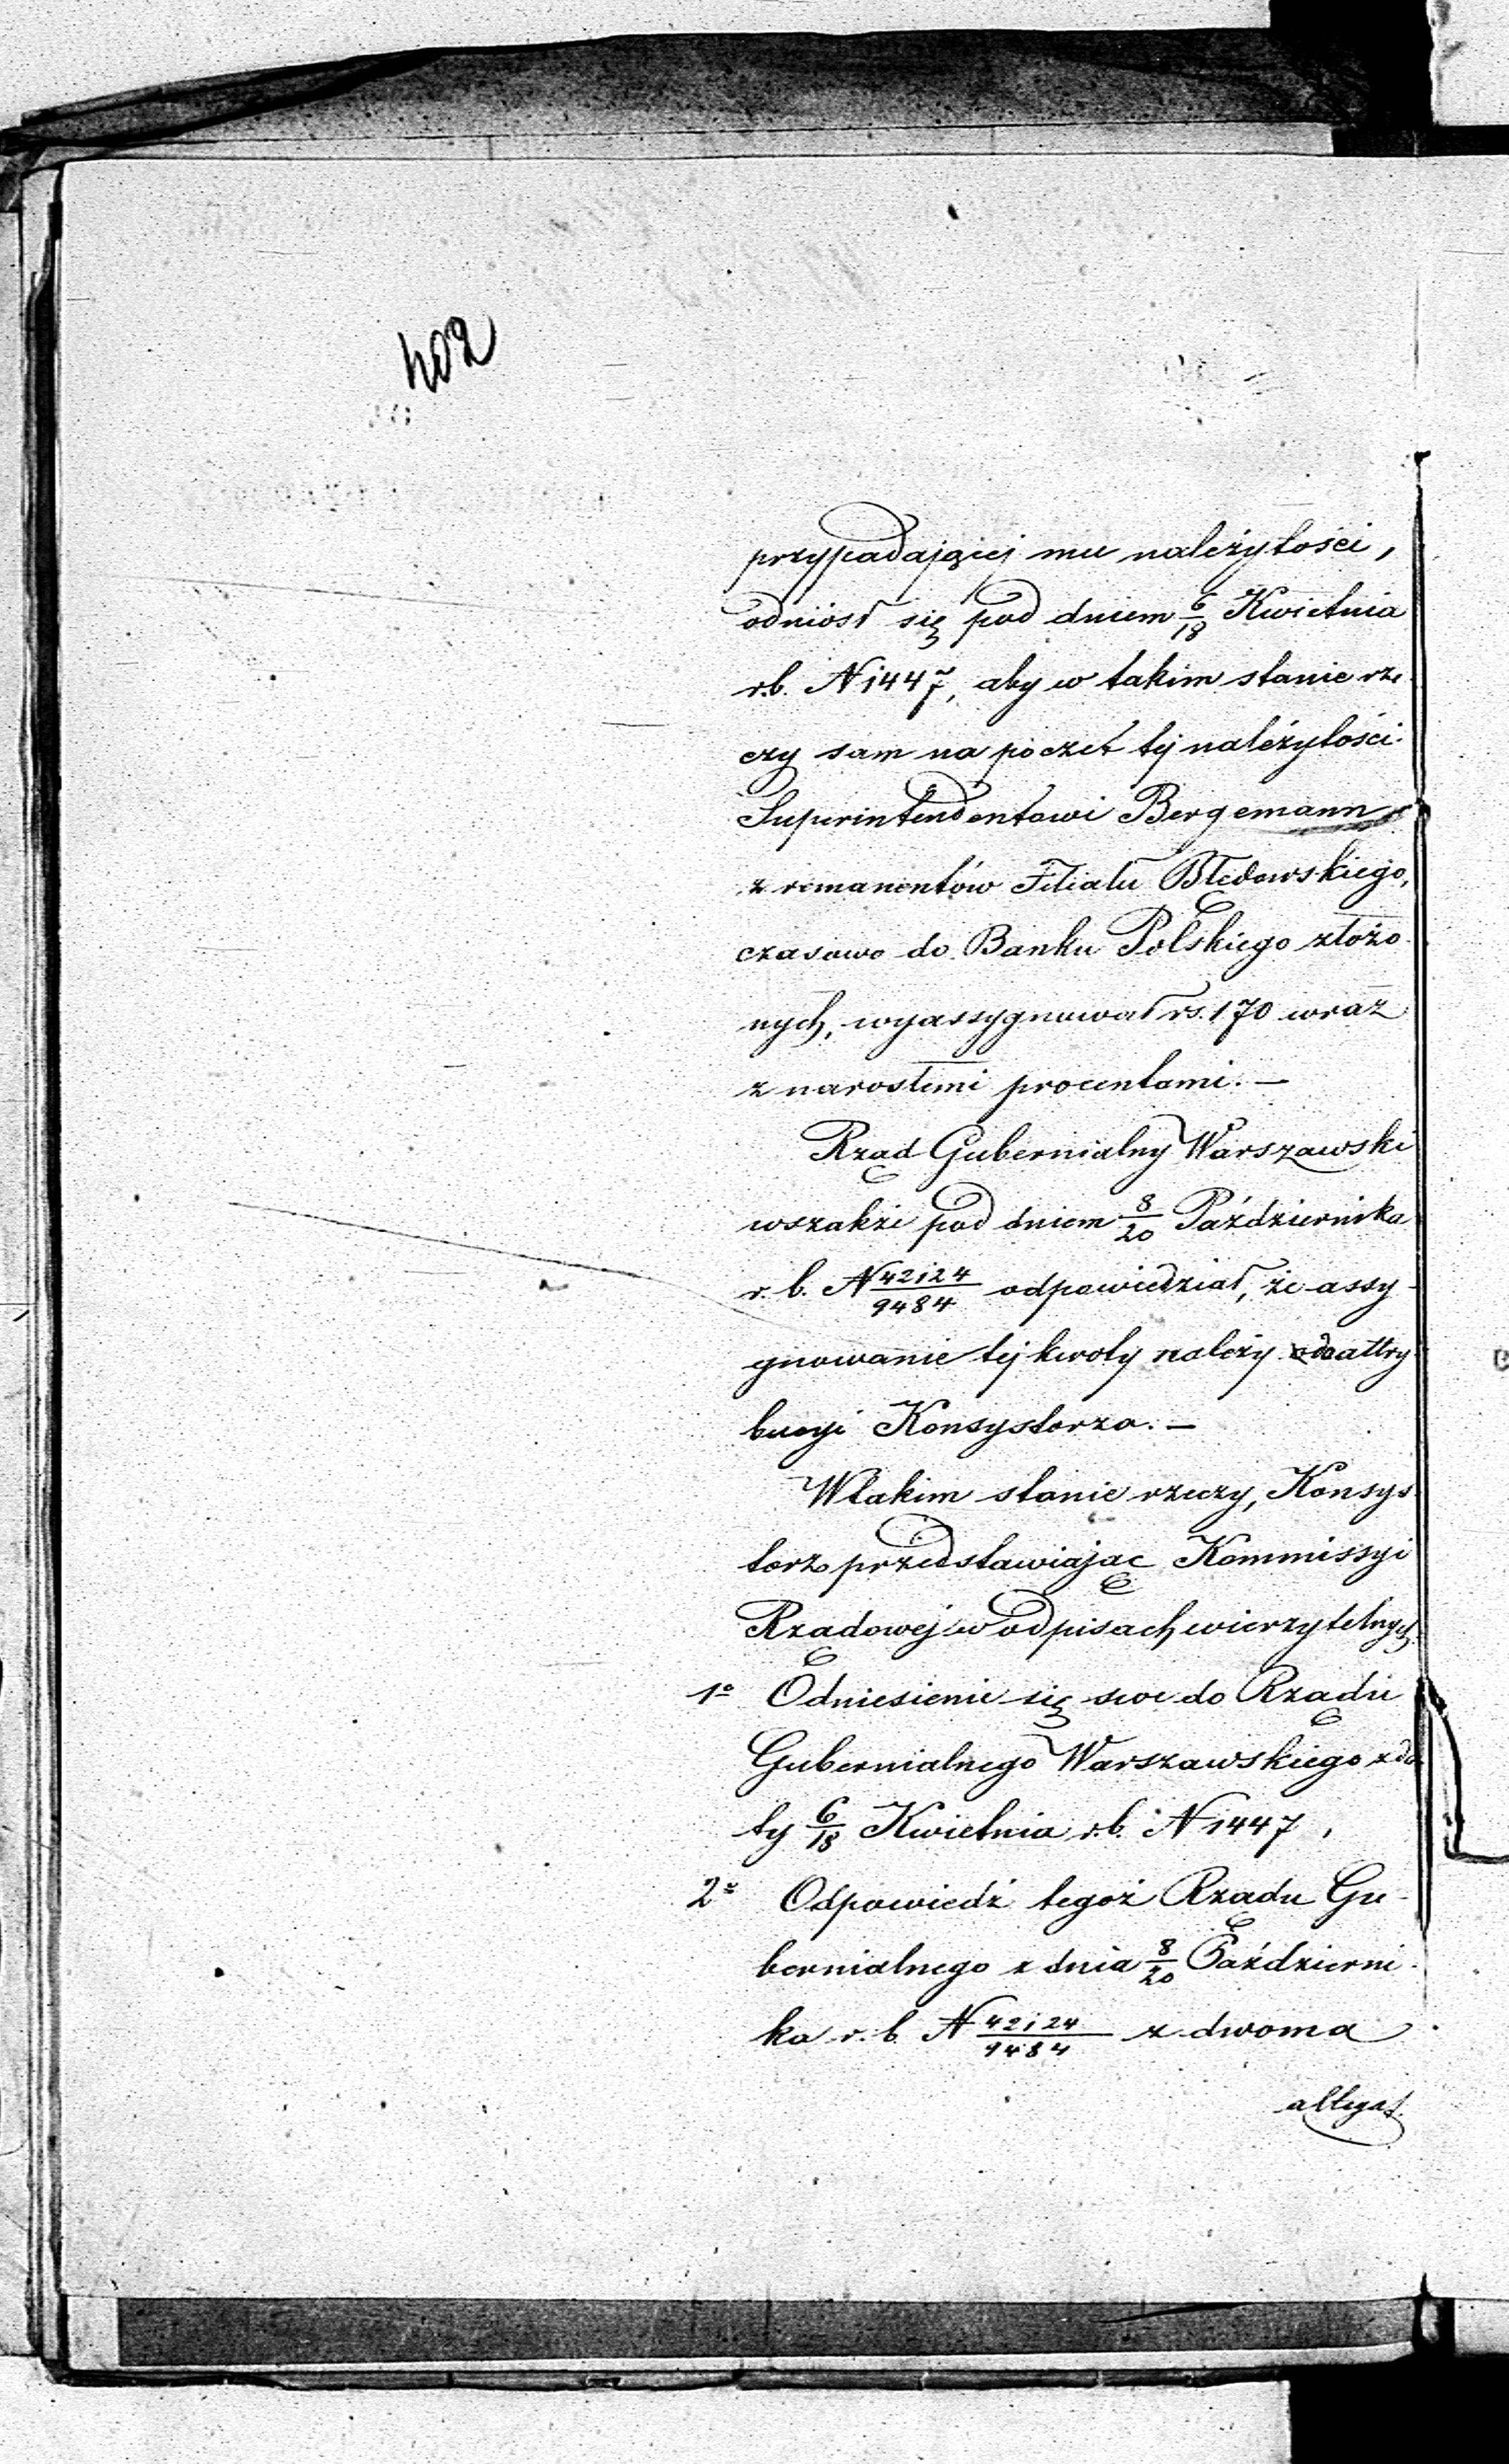 402
przypadającej mu należytości,
odniósł się pod dniem 6/18 Kwietnia
r.b. N 1447, aby w takim stanie rze
czy sam na poczet tej należytości
Superintendentowi Bergemann
z remanentów Filiału Błędowskiego,
czasowo do Banku Polskiego złożo
nych, wyassygnował rs. 170 wraz
z narosłemi procentami. —
Rząd Gubernialny Warszawski
wszakże pod dniem 8/20 Października
r. b. N 42124/9484 odpowiedział, że assy-
gnowanie tej kwoty należy do attry
bucyi Konsystorza. —
W takim stanie rzeczy, Konsys
torz przedstawiając Kommissyi
Rządowej w odpisach wierzytelnych
1o Odniesienie się swe do Rządu
Gubernialnego Warszawskiego z da
ty 6/18 Kwietnia r.b. N 1447,
2o Odpowiedź tegoż Rządu Gu-
bernialnego z dnia 8/20 Październi-
ka r. b. N 42124/9484 z dwoma
allegat.